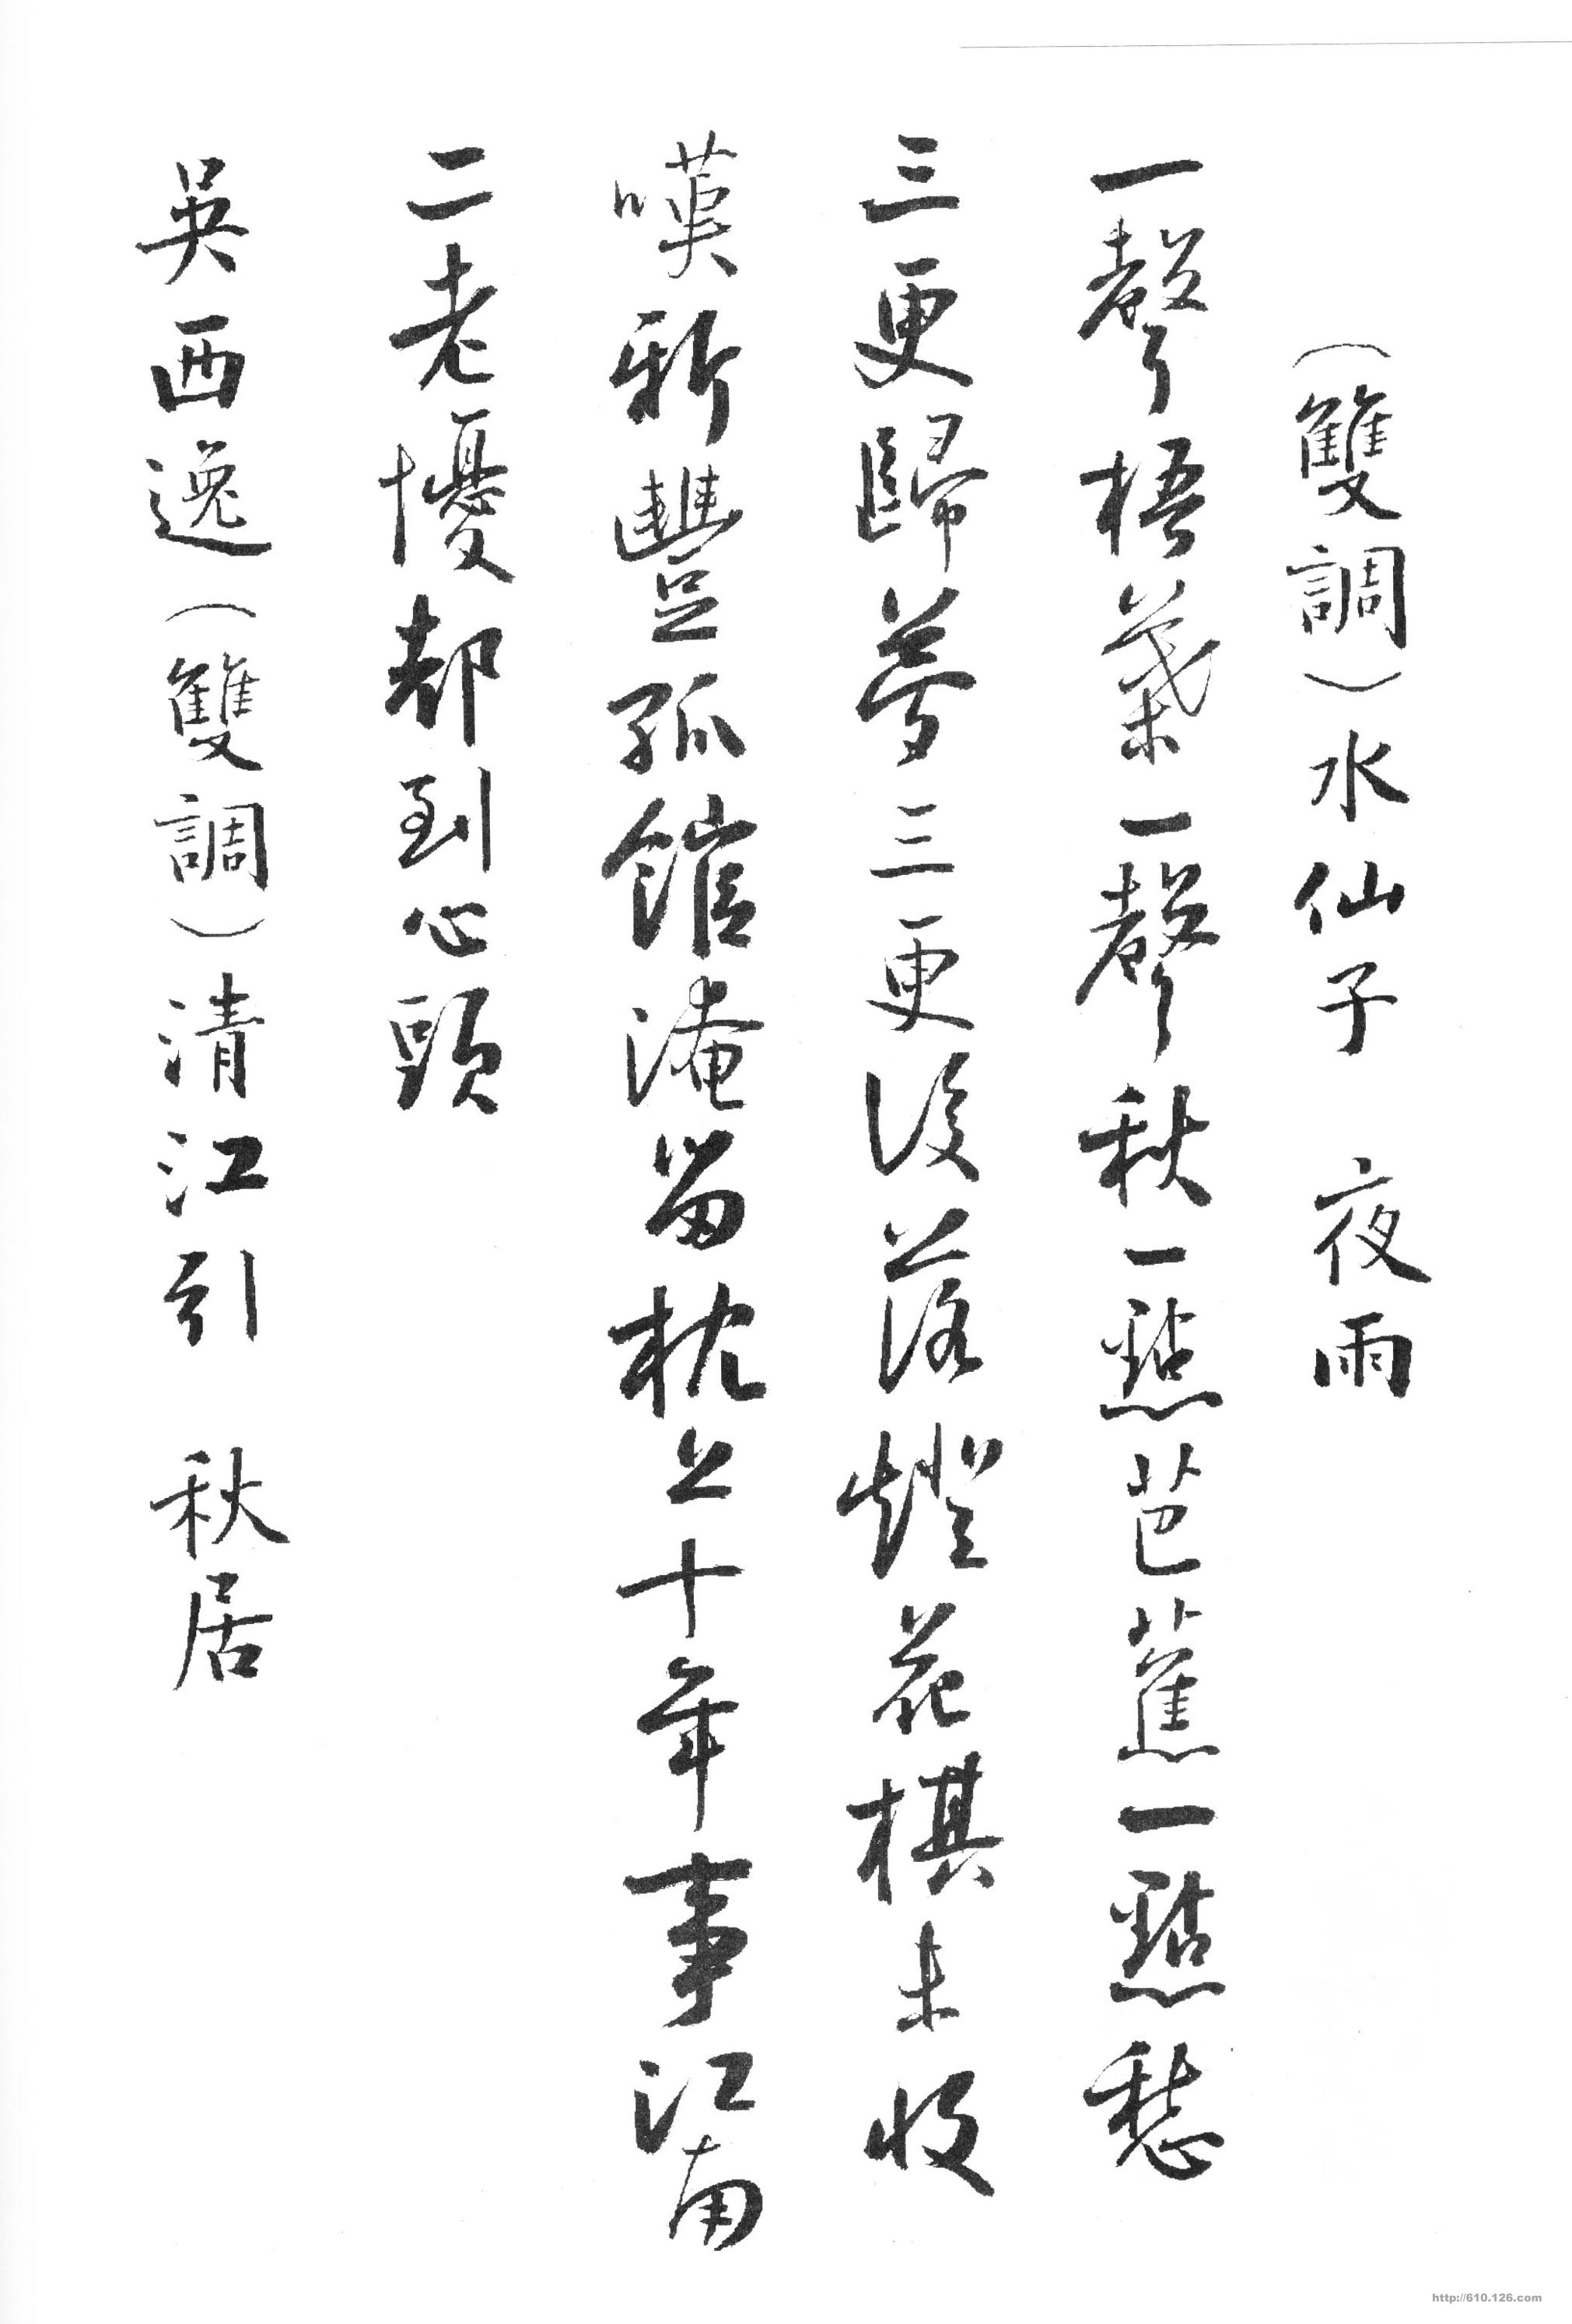 （雙調）水仙子 夜雨
一聲梧葉一聲秋一點芭蕉一點愁
三更歸夢三更後落燈花棋未收
嘆新豐孤館淹留枕上十年事江南
二老懮都到心頭
吳西逸（雙調）清江引 秋居
http://610.126.com